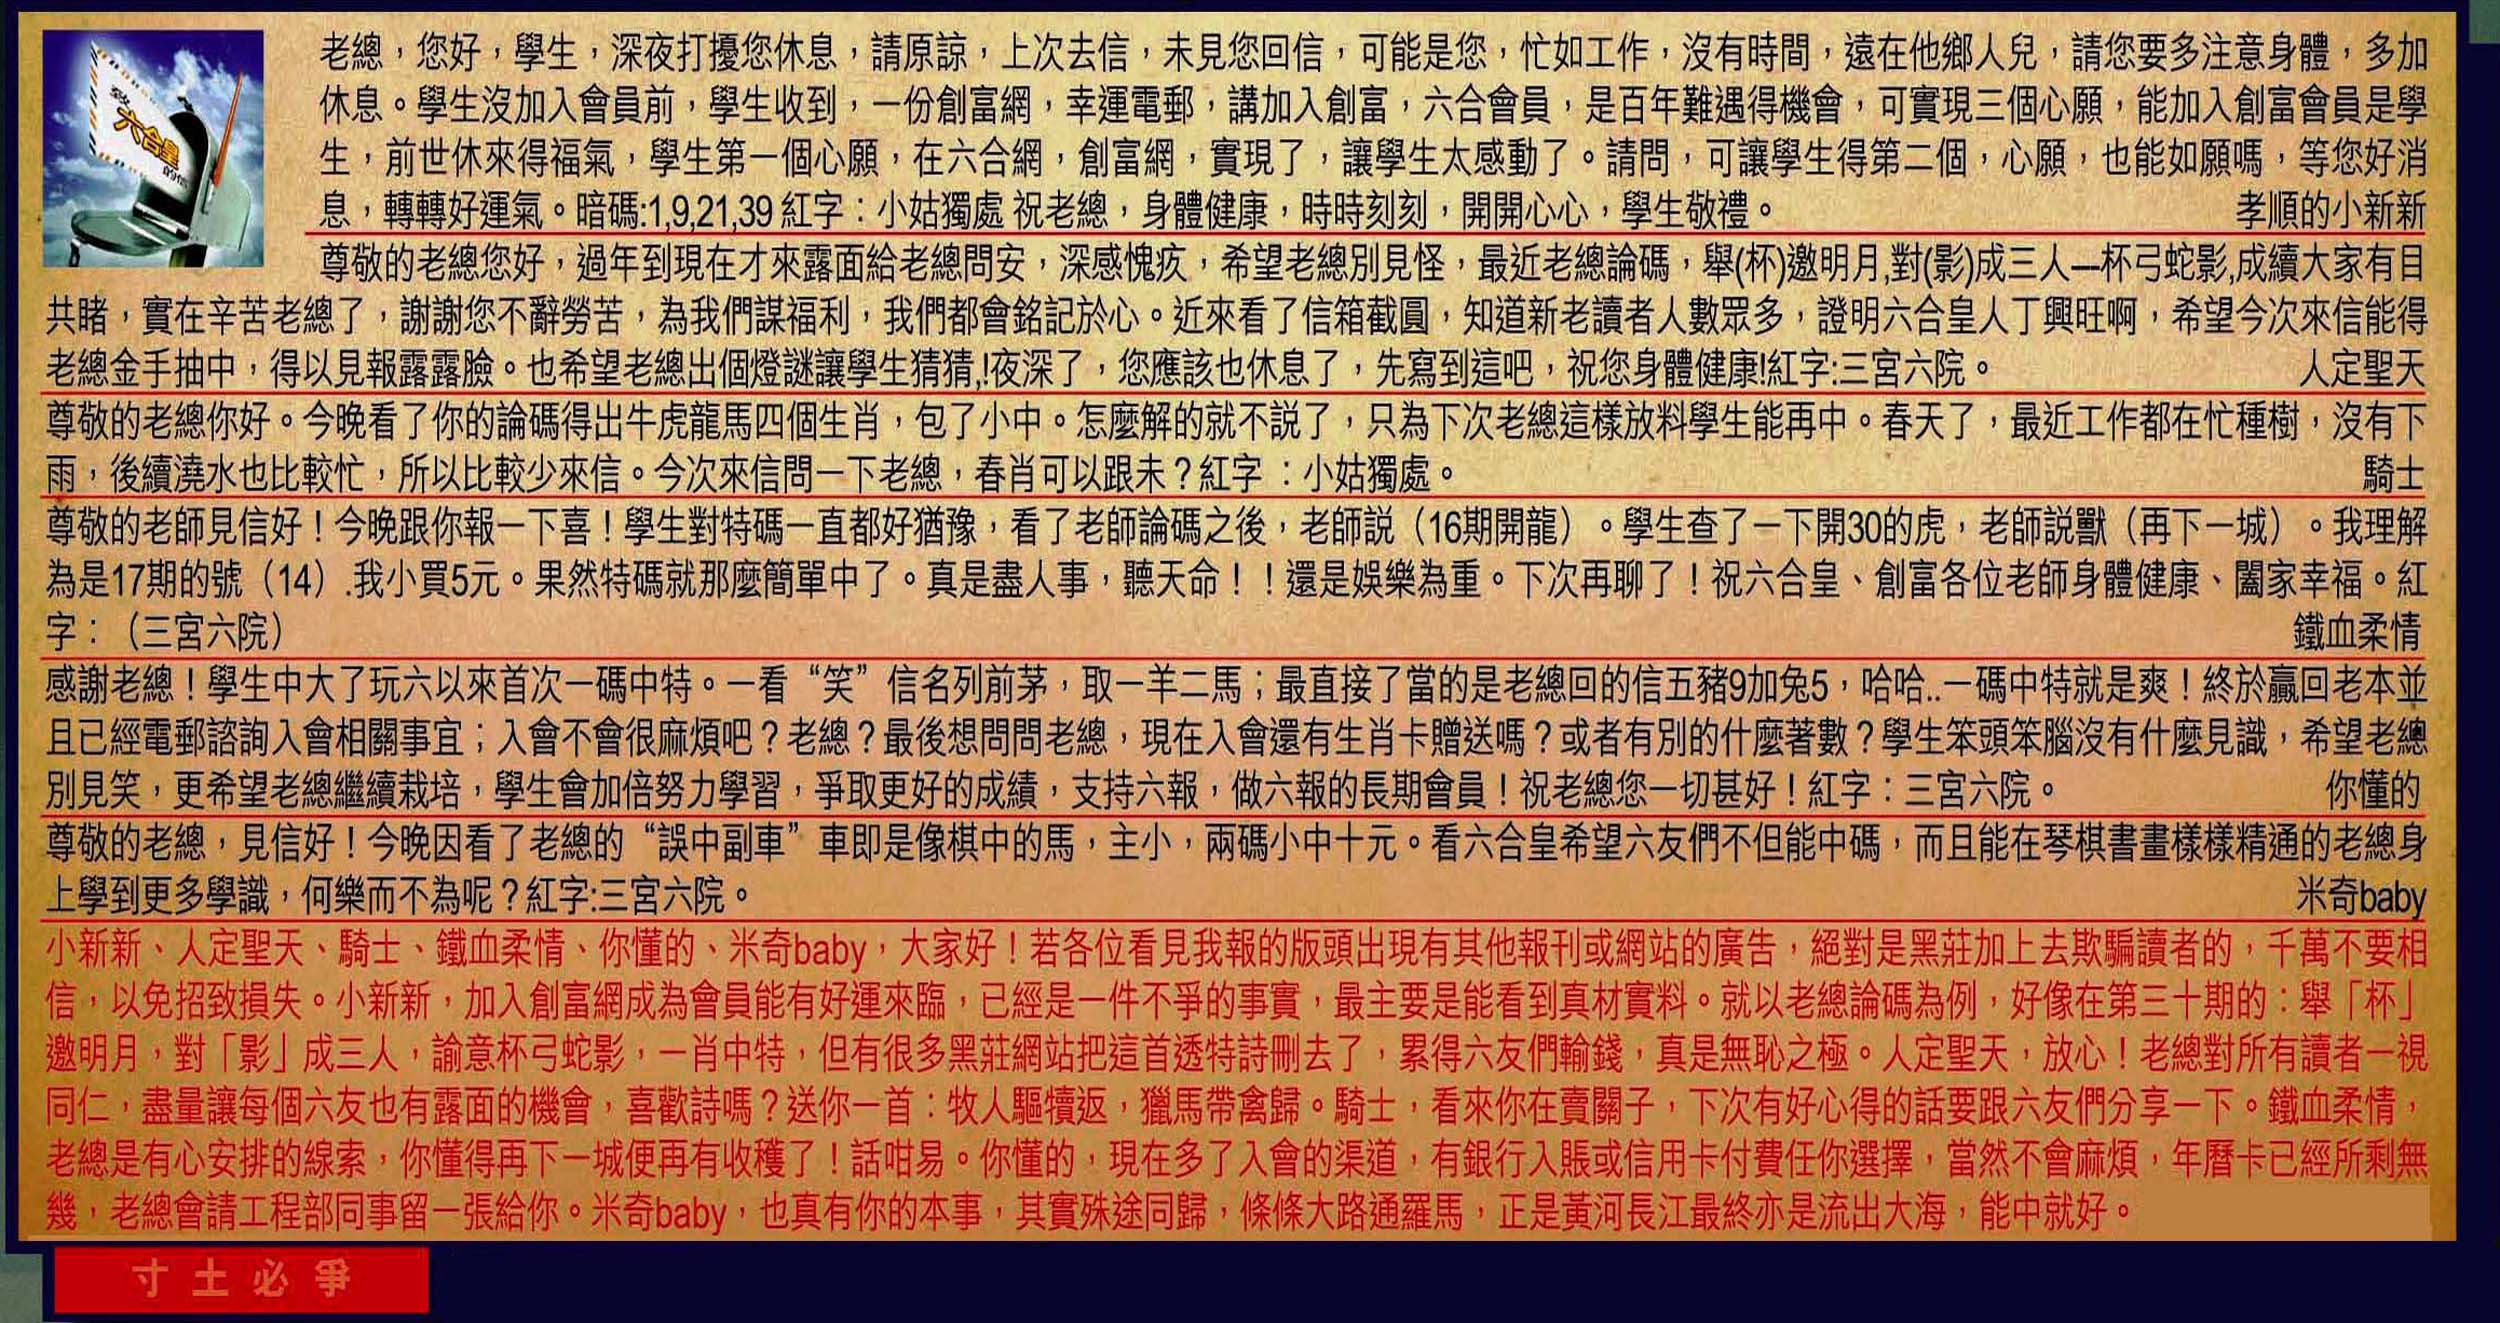 致
六合皇
的信
老總，您好，學生，深夜打擾您休息，請原諒，上次去信，未見您回信，可能是您，忙如工作，沒有時間，遠在他鄉人兒，請您要多注意身體，多加
休息。學生沒加入會員前，學生收到，一份創富網，幸運電郵，講加入創富，六合會員，是百年難遇得機會，可實現三個心願，能加入創富會員是學
生，前世休來得福氣，學生第一個心願，在六合網，創富網，實現了，讓學生太感動了。請問，可讓學生得第二個，心願，也能如願嗎，等您好消
息，轉轉好運氣。暗碼:1,9,21,39 紅字：小姑獨處 祝老總，身體健康，時時刻刻，開開心心，學生敬禮。 孝順的小新新
尊敬的老總您好，過年到現在才來露面給老總問安，深感愧疚，希望老總別見怪，最近老總論碼，舉(杯)邀明月,對(影)成三人—杯弓蛇影,成續大家有目
共睹，實在辛苦老總了，謝謝您不辭勞苦，為我們謀福利，我們都會銘記於心。近來看了信箱截圓，知道新老讀者人數眾多，證明六合皇人丁興旺啊，希望今次來信能得
老總金手抽中，得以見報露露臉。也希望老總出個燈謎讓學生猜猜,!夜深了，您應該也休息了，先寫到這吧，祝您身體健康!紅字:三宮六院。 人定聖天
尊敬的老總你好。今晚看了你的論碼得出牛虎龍馬四個生肖，包了小中。怎麼解的就不說了，只為下次老總這樣放料學生能再中。春天了，最近工作都在忙種樹，沒有下
雨，後續澆水也比較忙，所以比較少來信。今次來信問一下老總，春肖可以跟未？紅字 ：小姑獨處。 騎士
尊敬的老師見信好！今晚跟你報一下喜！學生對特碼一直都好猶豫，看了老師論碼之後，老師説（16期開龍）。學生查了一下開30的虎，老師説獸（再下一城）。我理解
為是17期的號（14）.我小買5元。果然特碼就那麼簡單中了。真是盡人事，聽天命！！還是娛樂為重。下次再聊了！祝六合皇、創富各位老師身體健康、闔家幸福。紅
字：（三宮六院） 鐵血柔情
感謝老總！學生中大了玩六以來首次一碼中特。一看“笑”信名列前茅，取一羊二馬；最直接了當的是老總回的信五豬9加兔5，哈哈..一碼中特就是爽！終於贏回老本並
且已經電郵諮詢入會相關事宜；入會不會很麻煩吧？老總？最後想問問老總，現在入會還有生肖卡贈送嗎？或者有別的什麼著數？學生笨頭笨腦沒有什麼見識，希望老總
別見笑，更希望老總繼續栽培，學生會加倍努力學習，爭取更好的成績，支持六報，做六報的長期會員！祝老總您一切甚好！紅字：三宮六院。 你懂的
尊敬的老總，見信好！今晚因看了老總的“誤中副車”車即是像棋中的馬，主小，兩碼小中十元。看六合皇希望六友們不但能中碼，而且能在琴棋書畫樣樣精通的老總身
上學到更多學識，何樂而不為呢？紅字:三宮六院。 米奇baby
小新新、人定聖天、騎士、鐵血柔情、你懂的、米奇baby，大家好！若各位看見我報的版頭出現有其他報刊或網站的廣告，絕對是黑莊加上去欺騙讀者的，千萬不要相
信，以免招致損失。小新新，加入創富網成為會員能有好運來臨，已經是一件不爭的事實，最主要是能看到真材實料。就以老總論碼為例，好像在第三十期的：舉「杯」
邀明月，對「影」成三人，諭意杯弓蛇影，一肖中特，但有很多黑莊網站把這首透特詩刪去了，累得六友們輸錢，真是無恥之極。人定聖天，放心！老總對所有讀者一視
同仁，盡量讓每個六友也有露面的機會，喜歡詩嗎？送你一首：牧人驅犢返，獵馬帶禽歸。騎士，看來你在賣關子，下次有好心得的話要跟六友們分享一下。鐵血柔情，
老總是有心安排的線索，你懂得再下一城便再有收穫了！話咁易。你懂的，現在多了入會的渠道，有銀行入賬或信用卡付費任你選擇，當然不會麻煩，年曆卡已經所剩無
幾，老總會請工程部同事留一張給你。米奇baby，也真有你的本事，其實殊途同歸，條條大路通羅馬，正是黃河長江最終亦是流出大海，能中就好。
寸土必爭